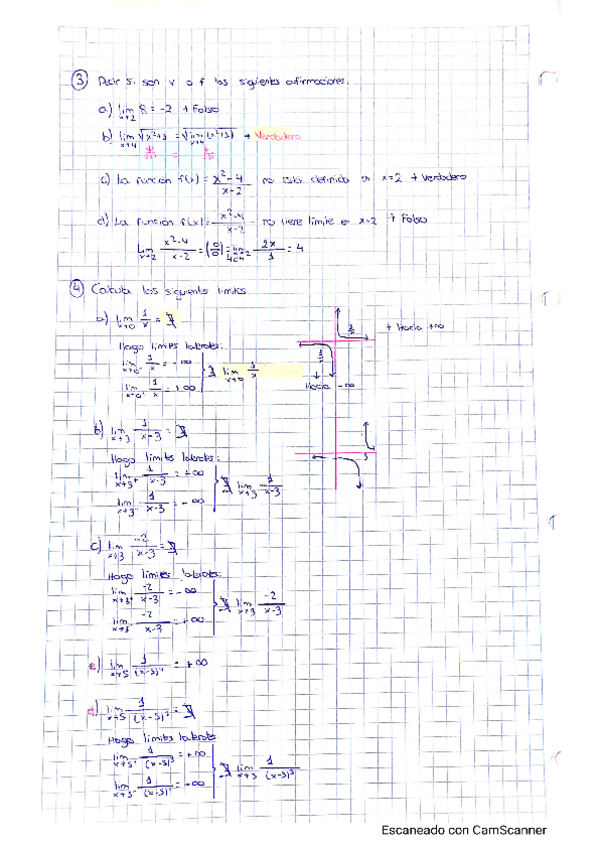 ③ Decir si son v o f las siguientes afirmaciones.
a) lim x→2 8 = -2 → Falso
b) lim x→4 √x²+3 = √lim x→4 (x²+3) → Verdadero
√19 = √19
c) La función f(x) = x²-4 / x-2 no está definida en x=2 → Verdadero
d) La función f(x) = x²-4 / x-2 no tiene límite en x=2 → Falso
lim x→2 x²-4 / x-2 = (0/0) = lim x→2 2x / 1 = 4
④ Calcula los siguientes límites
a) lim x→0 1/x = ∄
→ Hacia +∞
Hago límites laterales:
lim x→0⁻ 1/x = -∞
∄ lim x→0 1/x
Hacia -∞
lim x→0⁺ 1/x = +∞
b) lim x→3 1/x-3 = ∄
Hago límites laterales:
lim x→3⁺ 1/x-3 = +∞
∄ lim x→3 1/x-3
lim x→3⁻ 1/x-3 = -∞
3
c) lim x→3 -2/x-3 = ∄
Hago límites laterales:
lim x→3⁺ -2/x-3 = -∞
∄ lim x→3 -2/x-3
lim x→3⁻ -2/x-3 = +∞
e) lim x→5 1/(x-5)⁴ = +∞
d) lim x→5 1/(x-5)³ = ∄
Hago límites laterales
lim x→5⁺ 1/(x-5)³ = +∞
∄ lim x→5 1/(x-5)³
lim x→5⁻ 1/(x-5)³ = -∞
Escaneado con CamScanner